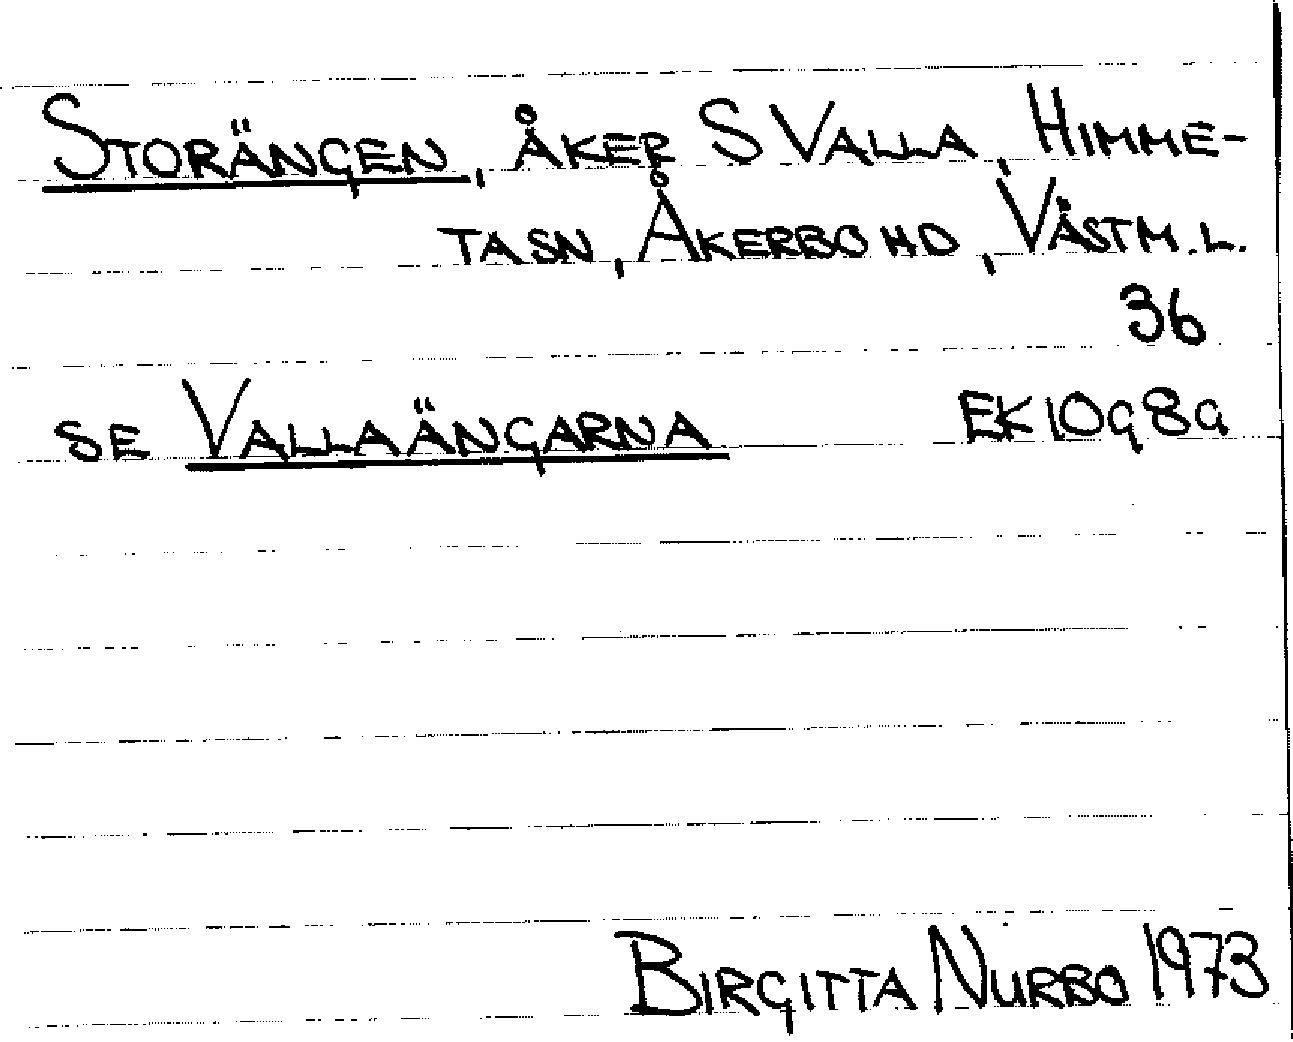 STORÄNGEN, ÅKER S VALLA, HIMME-
TA SN, ÅKERBO HD, VÄSTM. L.
36
SE VALLAÄNGARNA EK 10989
BIRGITTA NURBO 1973